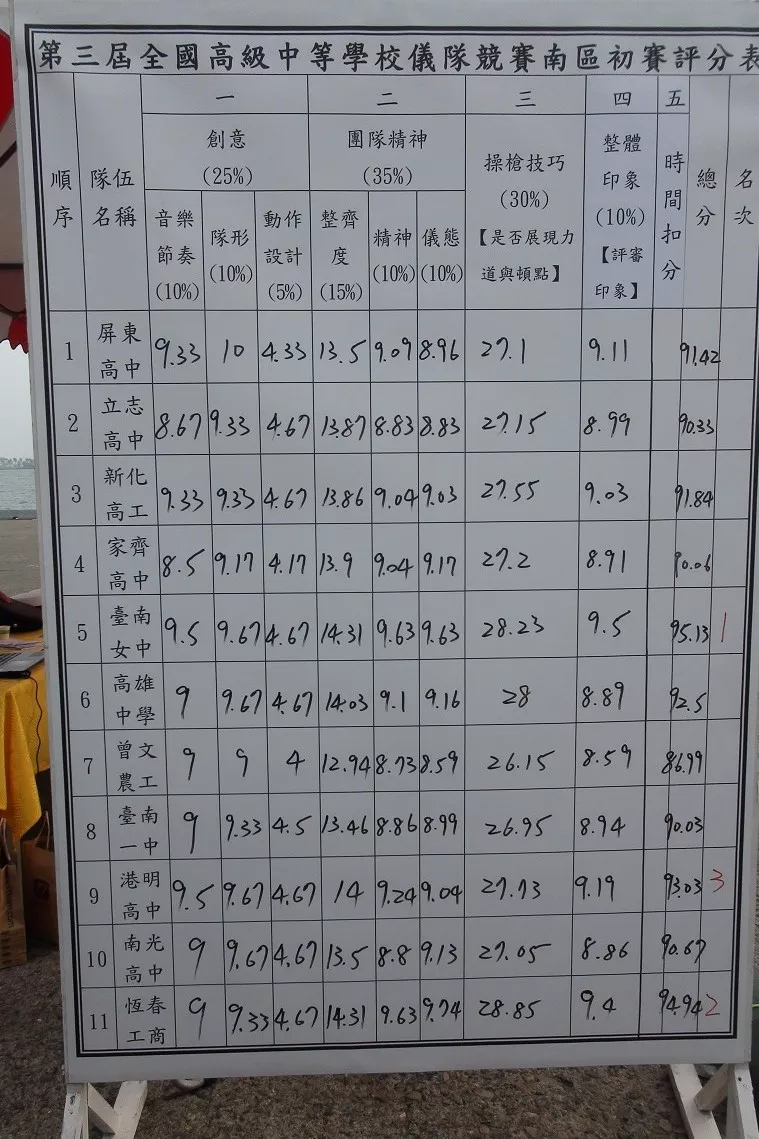 第三屆全國高級中等學校儀隊競賽南區初賽評分表
順序 隊伍名稱 一 二 三 四 五 總分 名次
創意 (25%) 團隊精神 (35%) 操槍技巧 (30%) 【是否展現力道與頓點】 整體印象 (10%) 【評審印象】 時間扣分
音樂節奏 (10%) 隊形 (10%) 動作設計 (5%) 整齊度 (15%) 精神 (10%) 儀態 (10%)
1 屏東高中 9.33 10 4.33 13.5 9.09 8.96 27.1 9.11 91.42
2 立志高中 8.67 9.33 4.67 13.87 8.83 8.83 27.15 8.99 90.33
3 新化高工 9.33 9.33 4.67 13.86 9.04 9.03 27.55 9.03 91.84
4 家齊高中 8.5 9.17 4.17 13.9 9.04 9.17 27.2 8.91 90.06
5 臺南女中 9.5 9.67 4.67 14.31 9.63 9.63 28.23 9.5 95.13 1
6 高雄中學 9 9.67 4.67 14.03 9.1 9.16 28 8.89 92.5
7 曾文農工 9 9 4 12.94 8.73 8.59 26.15 8.59 86.99
8 臺南一中 9 9.33 4.5 13.46 8.86 8.99 26.95 8.94 90.03
9 港明高中 9.5 9.67 4.67 14 9.24 9.04 27.73 9.19 93.03 3
10 南光高中 9 9.67 4.67 13.5 8.8 9.13 27.05 8.86 90.67
11 恆春工商 9 9.33 4.67 14.31 9.63 9.74 28.85 9.4 94.94 2